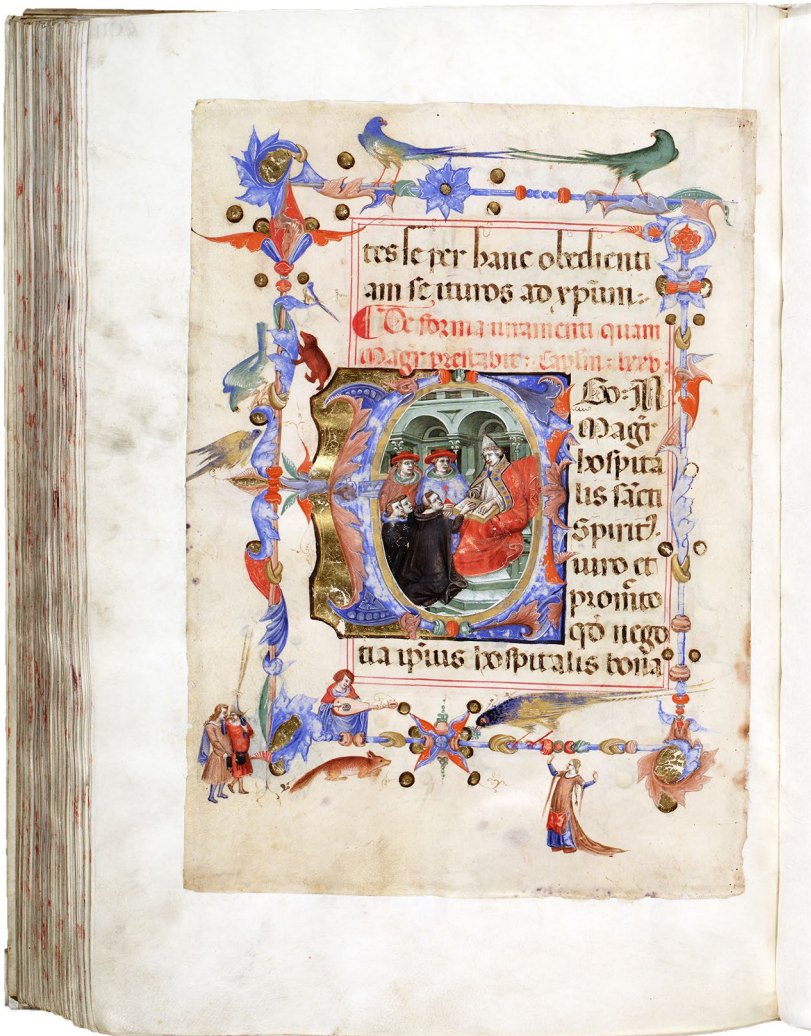 tes se per hanc obedienti
am scituros ad xpum:
De forma iuramenti quam
Magr prestabit: Caplm: lxxv:
Ego: N
Magr
hospita
lis sacti
Spirit9.
iuro et
promito
qd nego
tia ipius hospitalis bona